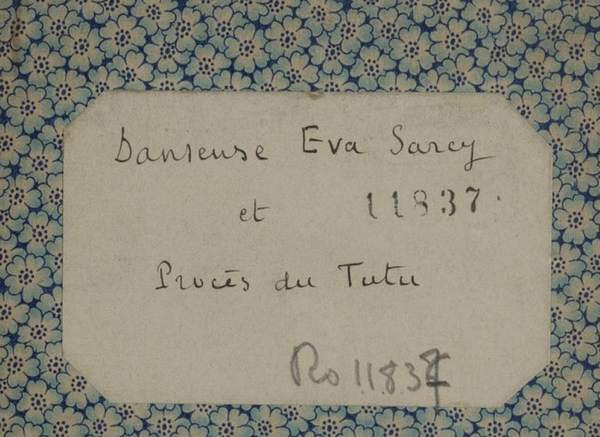 Danseuse Eva Sarcy
et 11837.
Procès du Tutu
Ro 11837